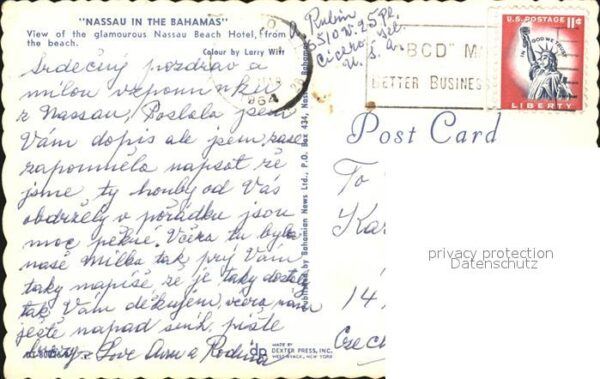 "NASSAU IN THE BAHAMAS"
View of the glamourous Nassau Beach Hotel, from
the beach.
Colour by Larry Witt
Srdečný pozdrav a
milou vzpomínku
z Nassau, Poslala jsem
Vám dopis ale jsem zase
zapomněla napsat že
jsme ty houby od Vás
obdržely v pořádku jsou
moc pěkné. Včera tu byla
naše Milka tak prý Vám
taky napíše že je taky dostala
tak Vám děkujem, včera nám
ještě napad sníh, pište
Love
a Rodina
A. Rubin
5510 W. 25 Pl.
Cicero, Ill.
U. S. A.
1964
"BCD" M
BETTER BUSINES
U.S. POSTAGE 11¢
IN GOD WE TRUST
LIBERTY
Published by Bahamian News Ltd., P.O. Box 434, Nassau, Bahamas
Post Card
To
Ka
14
Czech
privacy protection
Datenschutz
dp
MADE BY
DEXTER PRESS, INC.
WEST NYACK, NEW YORK